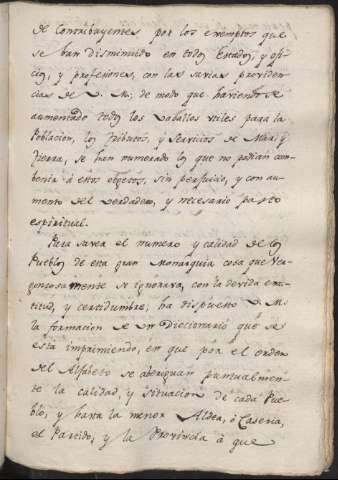 de Contribuyentes por los exemptos que
se han disminuido en todos Estados, y ofi-
cios, y profesiones, con las savias providen-
cias de V. M.; de modo que haviendose
aumentado todos los Vasallos utiles para la
Poblacion, los Tributos, y Servicios de Mar, y
tierra, se han numerado los que no podian con-
tribuir à estos objetos, sin perjuicio, y con au-
mento del verdadero, y necesario pasto
espiritual.
Para saver el numero y calidad de los
Pueblos de esta gran Monarquia cosa que ver-
gonzosamente se ignorava, con la devida exac-
titud, y certidumbre; ha dispuesto V. M.
la formacion de un Diccionario que se
esta imprimiendo, en que por el orden
del Alfabeto se aberiguan puntualmen-
te la calidad, y situacion de cada Pue-
blo, y hasta la menor Aldea, ò Caseria,
el Partido, y la Provincia à que